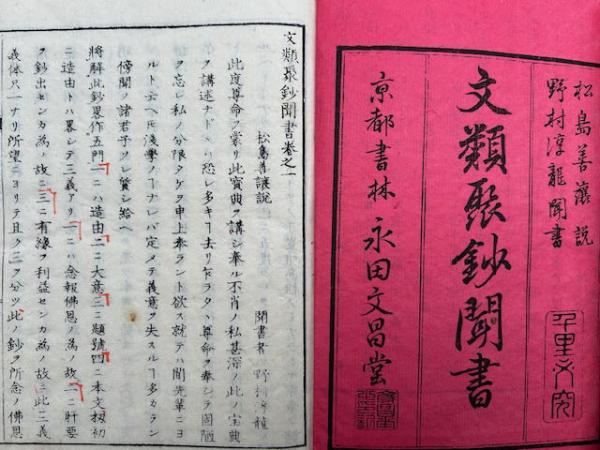 松島善讓説
野村淳龍聞書
文類聚鈔聞書
京都書林 永田文昌堂
文類聚鈔聞書卷之一
松島善讓説
聞書者 野村淳龍
此度尊命ヲ蒙リ此寳典ヲ講シ奉ル不肖ノ私甚深ノ此ノ宝典
ヲ講述ナドトハ恐レ多キ ヿ 去リ乍ラタヽ尊命ヲ奉シテ固陋
ヲ忘レ私ノ分限タケヲ申上奉ラント欲ス就テハ間先輩ニヨ
ルト云ヘ𪜈浅學ノ ヿ ナレバ定メテ義意ヲ失スル ヿ 多カラン
傍聞ノ諸君子ソレ質シ給ヘ
將解此鈔畧作五門一ニハ造由二ニ大意三ニ題號四ニ本文 初
ニ造由トハ畧シテ三義アリ一ニハ念報佛恩ノ為ノ故二ニ肝要
ヲ鈔出センカ為ノ故ニ三ニ有縁ヲ利益センカ為ノ故ニ此三義
義体只一ナリ所望ニヨリテ且ク三ヲ分ツ此ノ鈔ヲ所念ノ佛恩